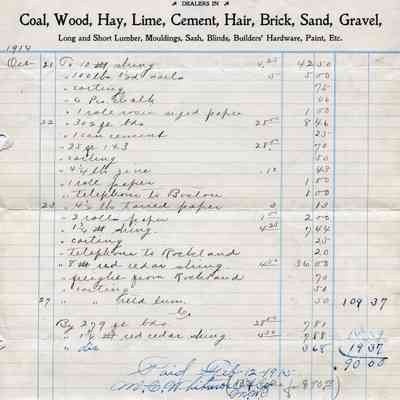 DEALERS IN
Coal, Wood, Hay, Lime, Cement, Hair, Brick, Sand, Gravel,
Long and Short Lumber, Mouldings, Sash, Blinds, Builders' Hardware, Paint, Etc.
1914
Oct 21 To 10 M shing 4.25 42 50
" 100 lbs nails 5 5 00
" carting 75
" 6 Pcs Chalk 06
" 1 roll rosin sized paper 1 00
22 " 302 ft bds 28 00 8 46
" 1 can cement 25
" 25 ft 1x3 28 00 70
" carting 50
" 4 1/4 lb zinc 48
" 1 roll paper 1 00
" telephone to Boston 1 00
23 " 4 1/2 lb tarred paper 3 13
" 2 rolls paper 1 00 2 00
" 1 3/4 M shing 4 25 7 44
" carting 25
" telephone to Rockland 20
" 8 M red cedar shing 4 50 36 00
" freight from Rockland 70
" carting 50
27 " " 50 109 37
By 279 ft bds 28 00 7 81
" 1 3/4 M red cedar shing 4 50 7 88
" dis 3 68 19 37
90 00
Paid Feb 12-1915